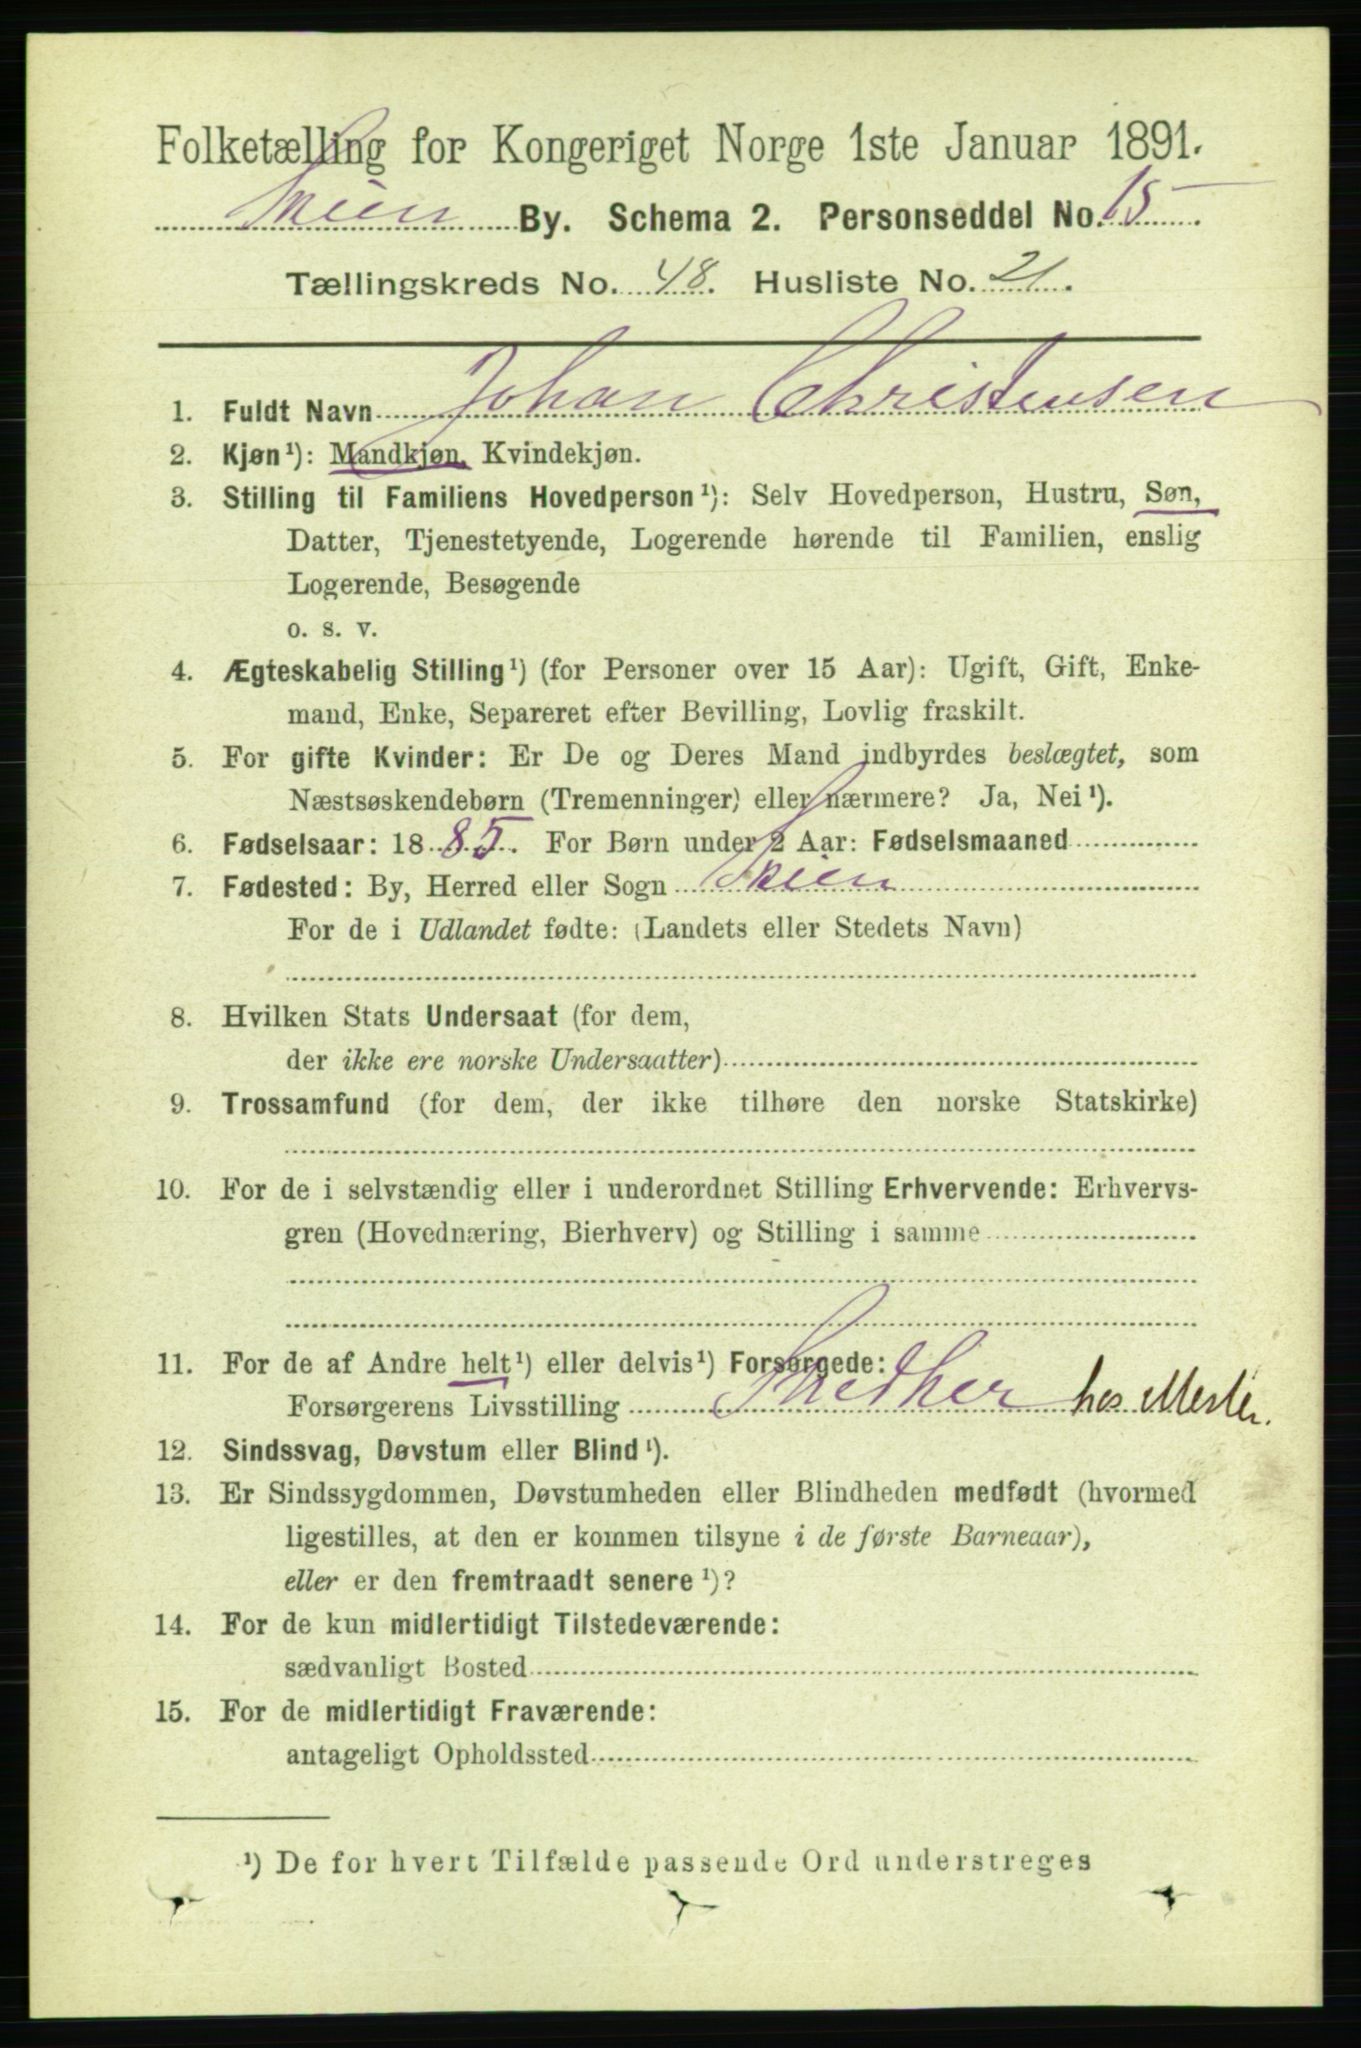 Folketælling for Kongeriget Norge 1ste Januar 1891.
Skien By. Schema 2. Personseddel No. 15
Tællingskreds No. 48. Husliste No. 21.
1. Fuldt Navn Johan Christensen
2. Kjøn¹): Mandkjøn, Kvindekjøn.
3. Stilling til Familiens Hovedperson¹): Selv Hovedperson, Hustru, Søn,
Datter, Tjenestetyende, Logerende hørende til Familien, enslig
Logerende, Besøgende
o. s. v.
4. Ægteskabelig Stilling¹) (for Personer over 15 Aar): Ugift, Gift, Enke-
mand, Enke, Separeret efter Bevilling, Lovlig fraskilt.
5. For gifte Kvinder: Er De og Deres Mand indbyrdes beslægtet, som
Næstsøskendebørn (Tremenninger) eller nærmere? Ja, Nei¹).
6. Fødselsaar: 1885. For Børn under 2 Aar: Fødselsmaaned
7. Fødested: By, Herred eller Sogn Skien
For de i Udlandet fødte: (Landets eller Stedets Navn)
8. Hvilken Stats Undersaat (for dem,
der ikke ere norske Undersaatter)
9. Trossamfund (for dem, der ikke tilhøre den norske Statskirke)
10. For de i selvstændig eller i underordnet Stilling Erhvervende: Erhvervs-
gren (Hovednæring, Bierhverv) og Stilling i samme
11. For de af Andre helt¹) eller delvis¹) Forsørgede:
Forsørgerens Livsstilling hos Mester.
12. Sindssvag, Døvstum eller Blind¹).
13. Er Sindssygdommen, Døvstumheden eller Blindheden medfødt (hvormed
ligestilles, at den er kommen tilsyne i de første Barneaar),
eller er den fremtraadt senere¹)?
14. For de kun midlertidigt Tilstedeværende:
sædvanligt Bosted
15. For de midlertidigt Fraværende:
antageligt Opholdssted
¹) De for hvert Tilfælde passende Ord understreges